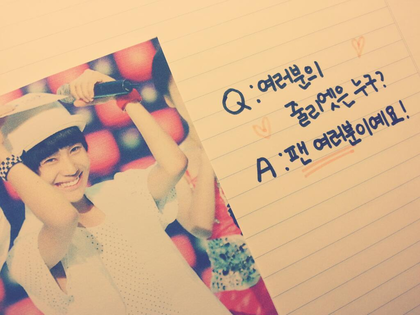 Q:여러분의
줄리엣은 누구?
A:팬 여러분이예요!